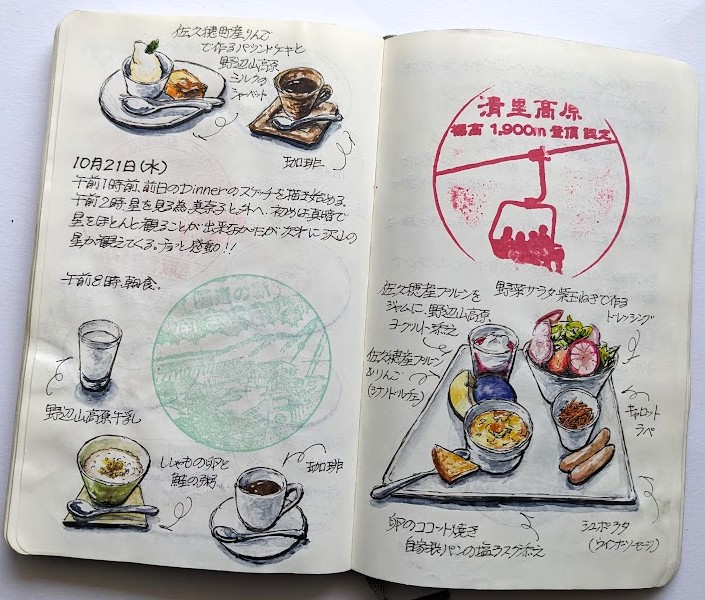 佐久穂町産りんご
で作るパウンドケーキと
野辺山高原
ミルクの
シャーベット
珈琲
10月21日(水)
午前1時前、前日のDinnerのスケッチを描き始める。
午前2時、星を見る為、美奈子と外へ。初めは真暗で
星をほとんど観ることが出来なかったが次第に沢山の
星が観えてくる。ちょっと感動!!
午前8時、朝食。
野辺山高原牛乳
ししゃもの卵と
鮭の粥
珈琲
清里高原
標高 1,900m 登頂 認定
佐久穂産プルーンを
ジャムに、野辺山高原
ヨーグルト添え
野菜サラダ 紫玉ねぎで作る
ドレッシング
佐久穂産プルーン
&りんご
(シナノドルチェ)
キャロット
ラペ
卵のココット焼き
自家製パンの塩ラスク添え
シュポラタ
(ウインナーソーセージ)